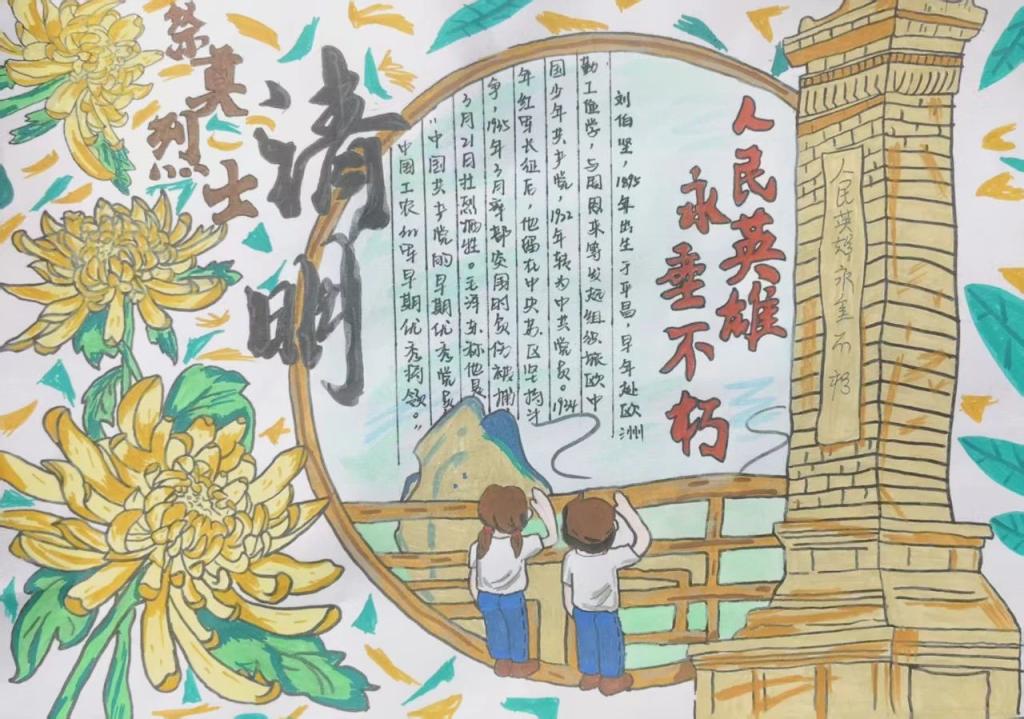 祭奠烈士
清明
人民英雄
永垂不朽
刘伯坚，1895年出生于平昌，早年赴欧洲
勤工俭学，与周恩来等发起组织旅欧中
国少年共产党，1922年转为中共党员。1934
年红军长征后，他留在中央苏区坚持斗
争，1935年3月率部突围时负伤被捕
3月21日壮烈牺牲。毛泽东称他是
“中国共产党的早期优秀党员
中国工农红军早期优秀将领。”
人民英雄永垂不朽